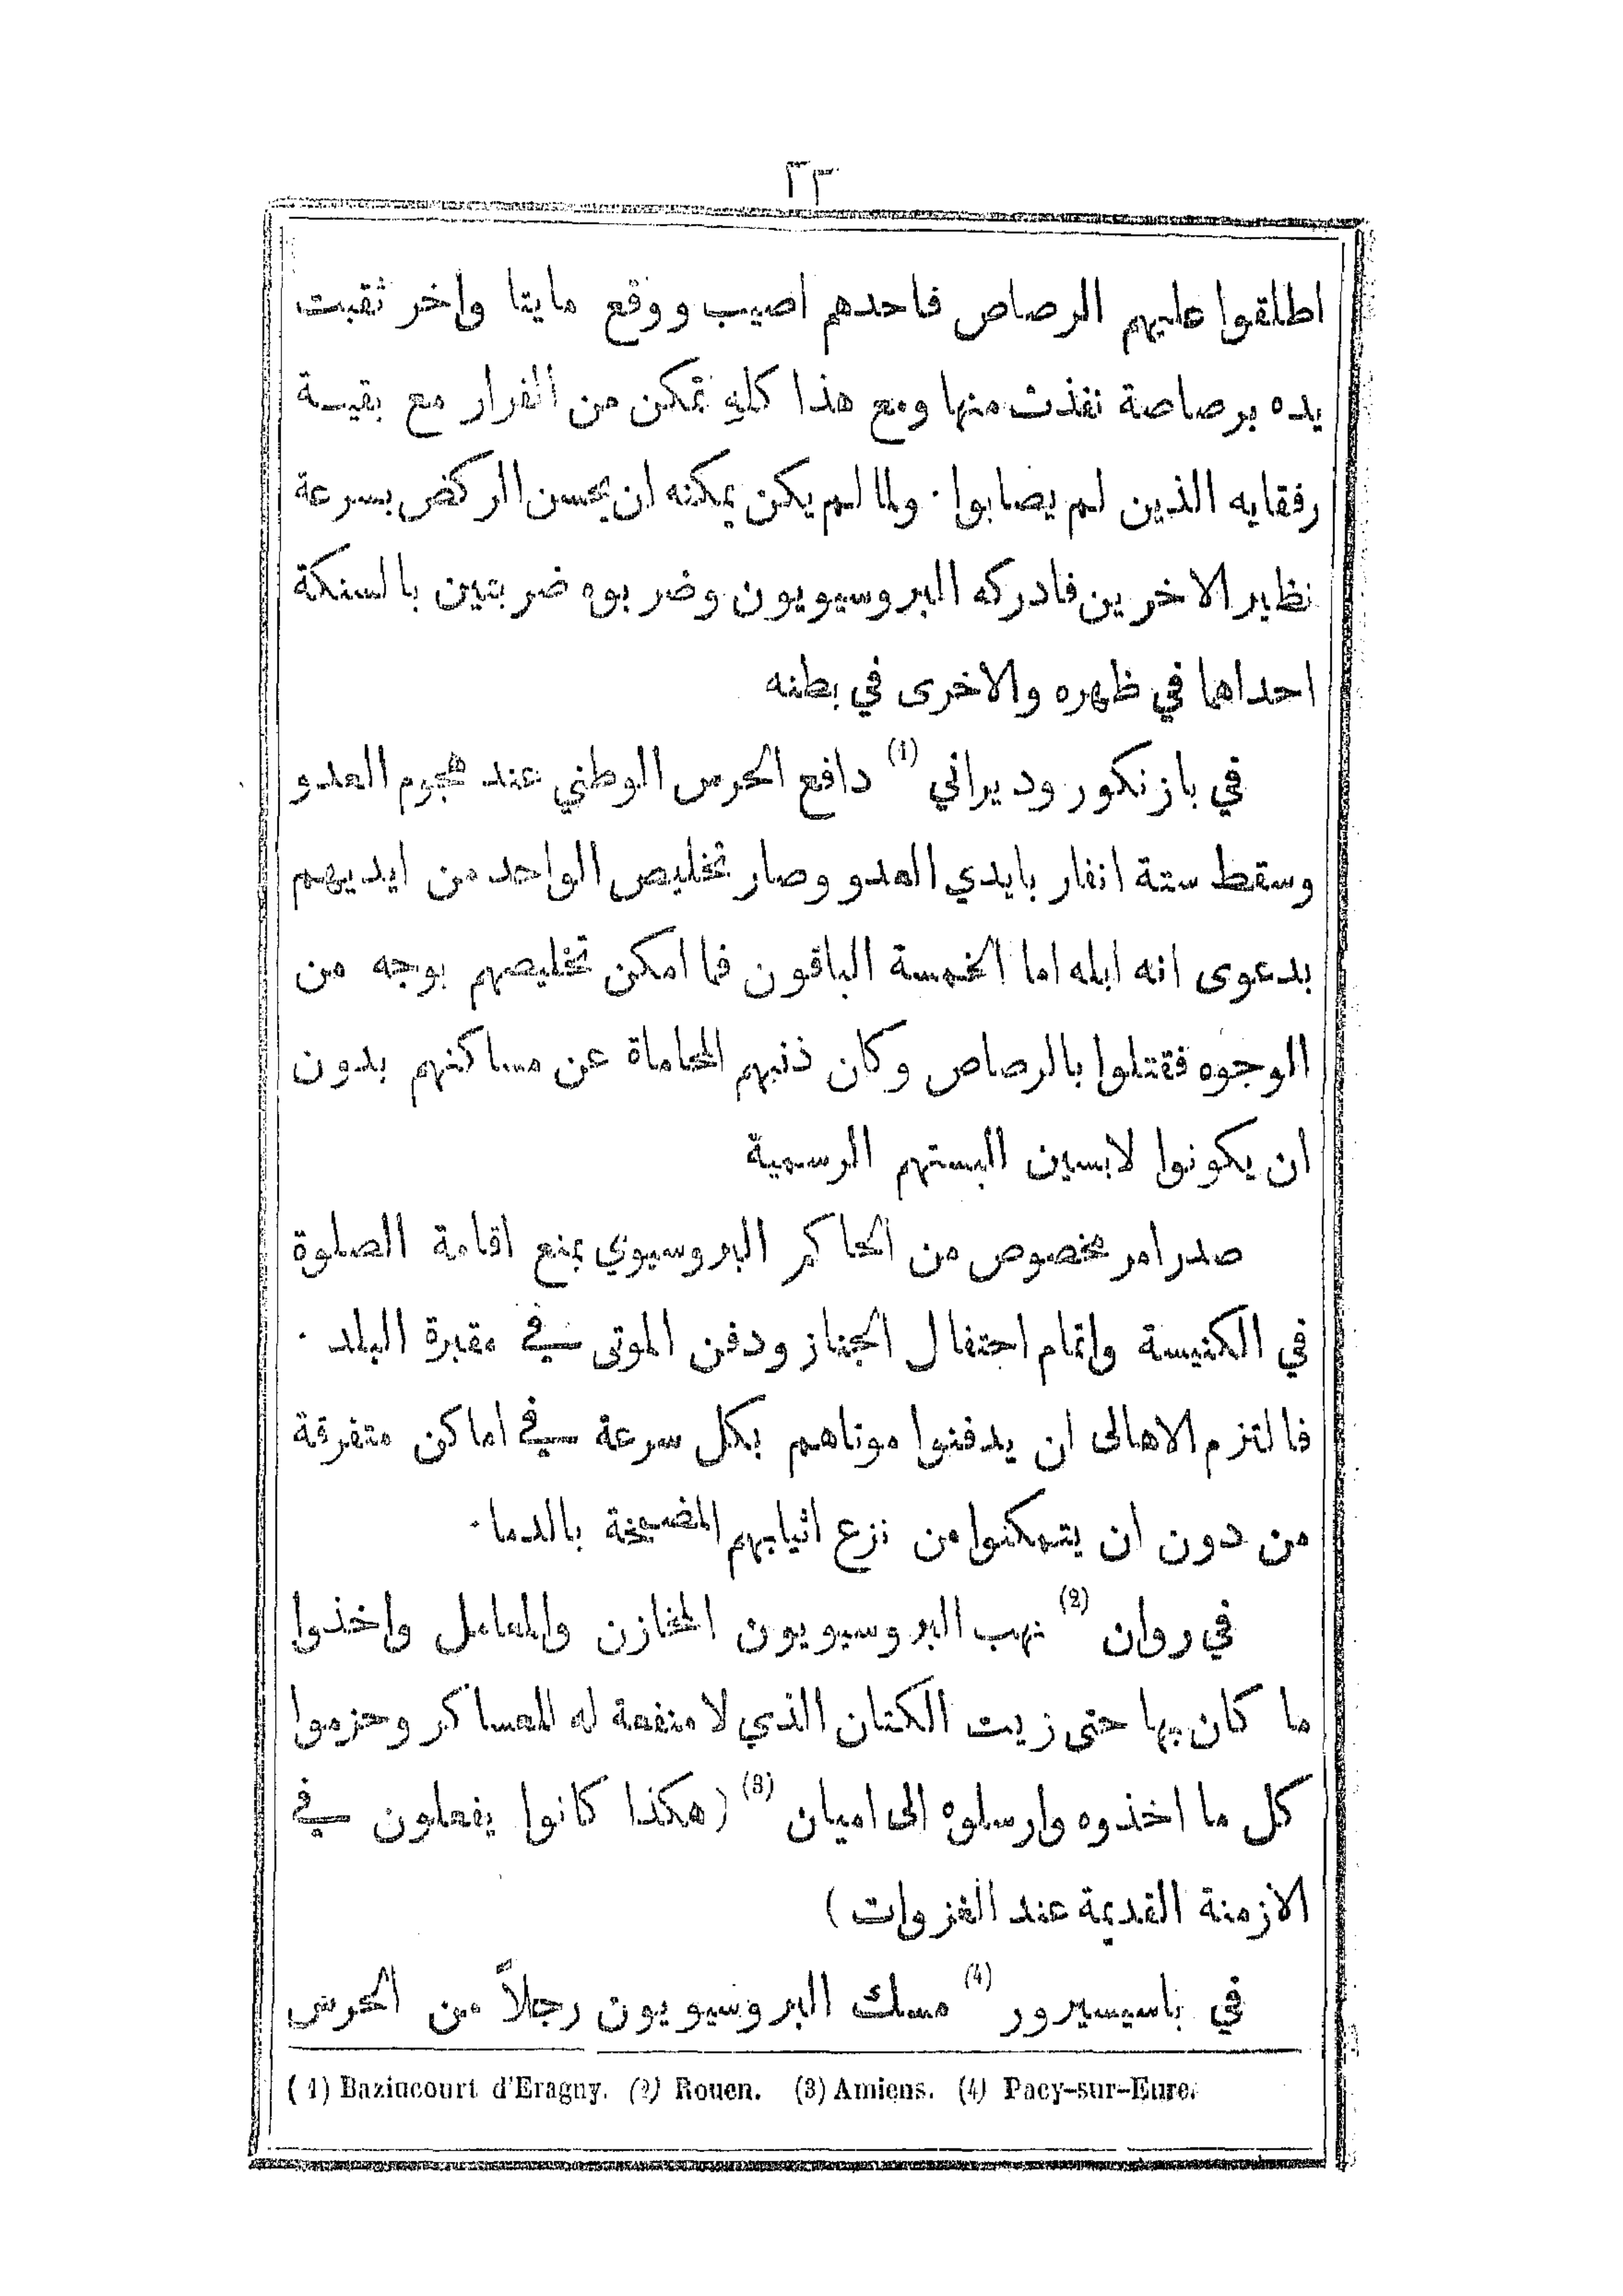 ٣٣
اطلقوا عليهم الرصاص فاحدهم اصيب ووقع مايتا واخر ثقبت
يده برصاصة نفذت منها ومع هذا كلهِ تمكن من الفرار مع بقية
رفقايه الذين لم يصابوا ٠ ولما لم يكن يمكنه ان يحسن الركض بسرعة
نظير الاخرين فادركه البروسيويون وضربوه ضربتين بالسنكة
احداهما في ظهره والاخرى في بطنه
في بازنكور وديراني (1) دافع الحرس الوطني عند هجوم العدو
وسقط ستة انفار بايدي العدو وصار تخليص الواحد من ايديهم
بدعوى انه ابله اما الخمسة الباقون فما امكن تخليصهم بوجه من
الوجوه فقتلوا بالرصاص وكان ذنبهم المحاماة عن مساكنهم بدون
ان يكونوا لابسين البستهم الرسمية
صدر امر مخصوص من الحاكم البروسيوي بمنع اقامة الصلوة
في الكنيسة واتمام احتفال الجناز ودفن الموتى في مقبرة البلد ٠
فالتزم الاهالى ان يدفنوا موتاهم بكل سرعة في اماكن متفرقة
من دون ان يتمكنوا من نزع اثيابهم المضمخة بالدما ٠
في روان (2) نهب البروسيويون المخازن والمعامل واخذوا
ما كان بها حتى زيت الكتان الذي لا منفعة له للعساكر وحزموا
كل ما اخذوه وارسلوه الى اميان (3) (هكذا كانوا يفعلون في
الازمنة القديمة عند الغزوات)
في باسيسيرور (4) مسك البروسيويون رجلاً من الحرس
(1) Bazincourt d'Eragny. (2) Rouen. (3) Amiens. (4) Pacy-sur-Eure.